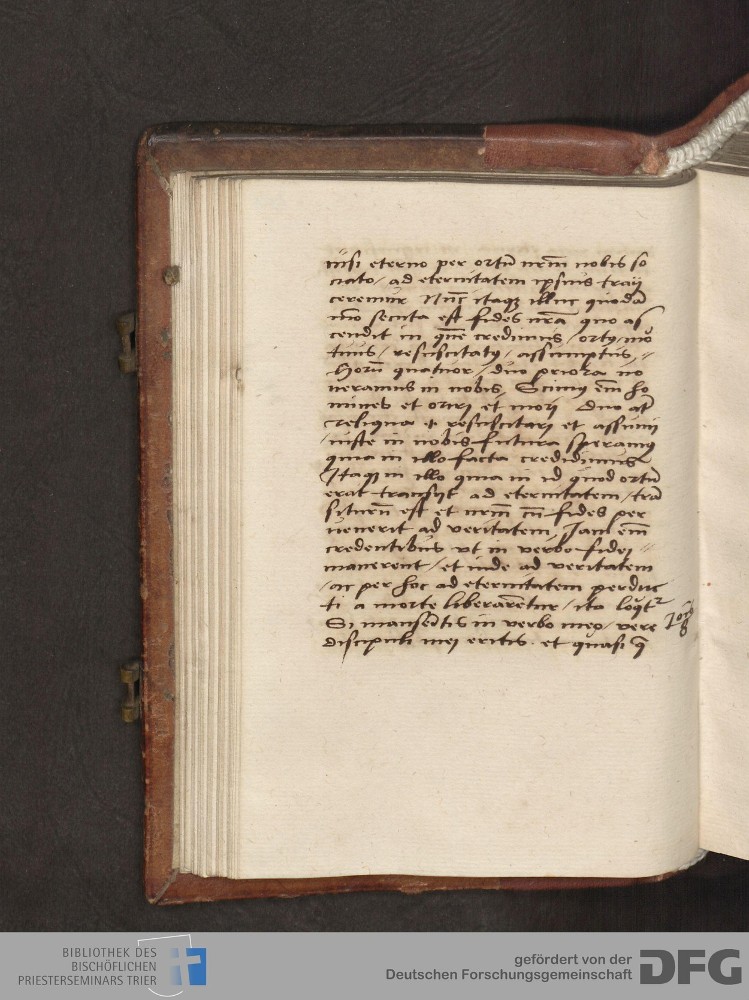 nisi eterno per ortũ nrm̃ nobis so
ciato / ad eternitatem ipsius traij
ceremur Nũc itaqz illuc quodã
mõ secuta est fides nr̃a quo as
cendit in quẽ credimus / ortus mo
tuus / resuscitatus / assumptus //
Horũ quatuor / duo priora no
ueramus in nobis, Scimus em̃ ho
mines et oriri et mori duo at̃
reliqua resuscitari et assumi
iuste in nobis futura speramus
quia in illo facta credidimus
Itaqz in illo quia in id quod ortũ
erat transijt ad eternitatem / trã
siturũ est et nrm̃ cũ fides per
uenerit ad veritatem, Iam em̃
credentibus vt in verbo fidei //
manerent / et inde ad veritatem
/ ac per hoc ad eternitatem perduc
ti a morte liberarẽtur / ita loqt2
Si mansẽtis in verbo meo / vere
discipuli mei eritis. et quasi q̃
Ioãs
8
BIBLIOTHEK DES
BISCHÖFLICHEN
PRIESTERSEMINARS TRIER
gefördert von der
Deutschen Forschungsgemeinschaft
DFG